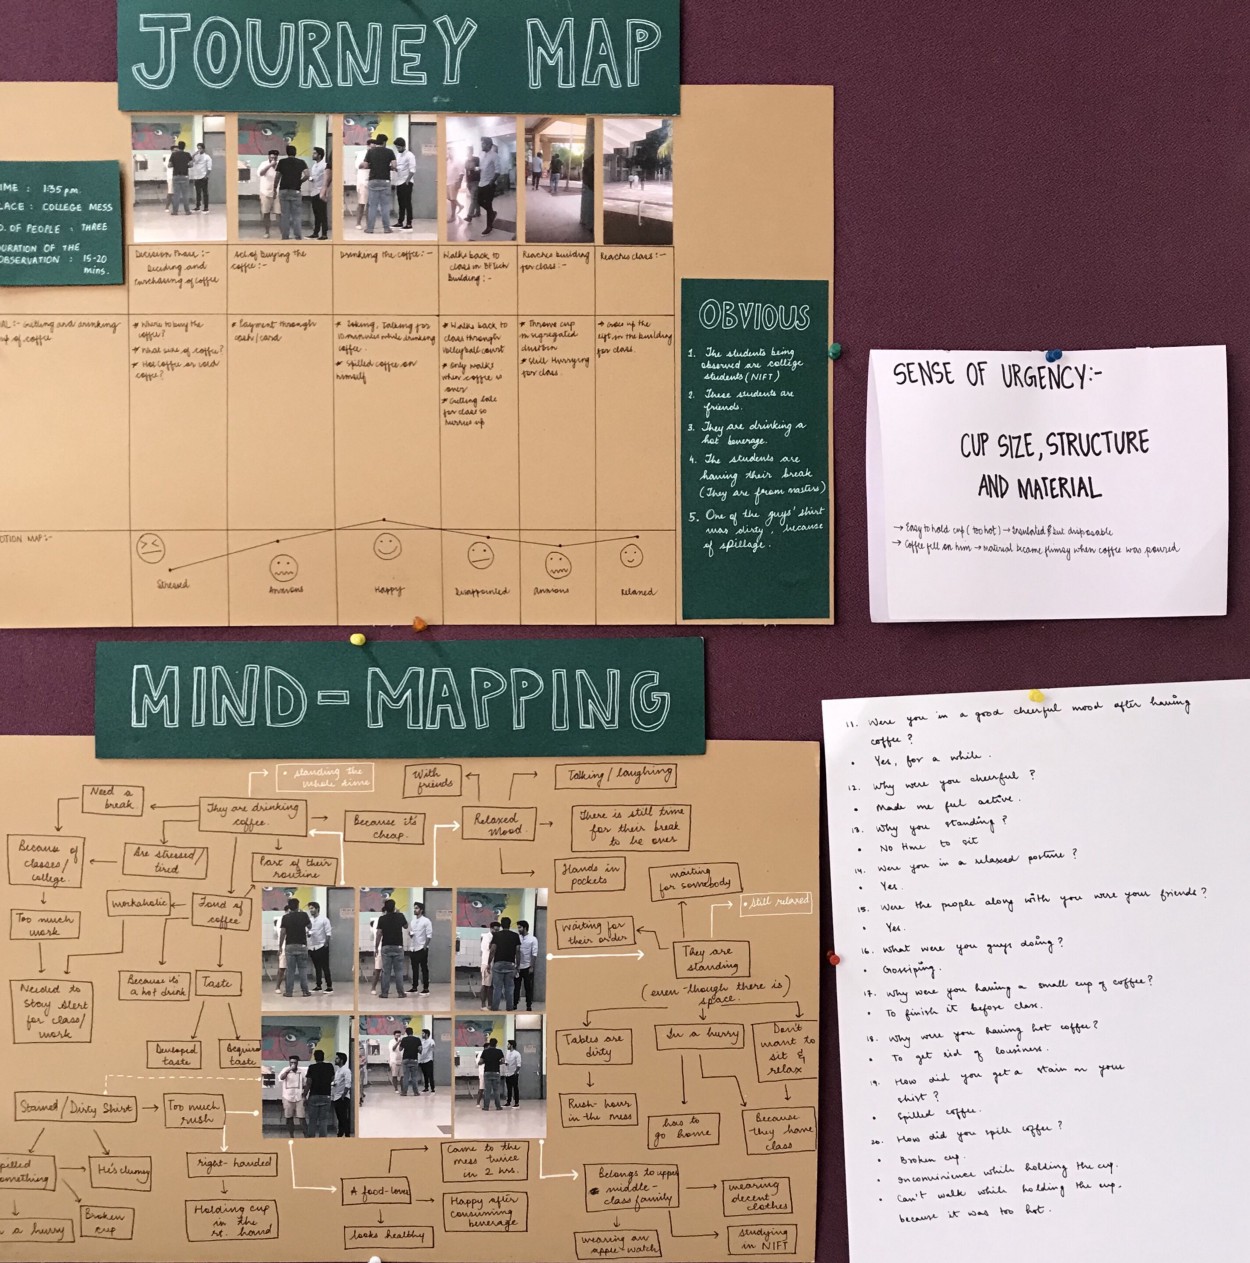 JOURNEY MAP
IME : 1:35 pm.
LACE : COLLEGE MESS
O. OF PEOPLE : THREE
URATION OF THE
OBSERVATION : 15-20
mins.
Decision Phase :-
Deciding and
Purchasing of coffee
Act of Buying the
coffee :-
Drinking the coffee :-
Walks back to
class in BFtech
Building :-
Reaches building
for class :-
Reaches class :-
AL :- Getting and drinking
up of coffee
* Where to buy the
coffee?
* What size of coffee?
* Hot coffee or cold
coffee?
* Payment through
cash/card
* Joking, Talking for
minutes while drinking
coffee.
* Spilled coffee on
himself
* Walks back to
class through
volleyball court
* Only walks
when coffee is
over
* Getting late
for class so
hurries up
* Throws cup
in segregated
dustbin
* Still Hurrying
for class.
→ Goes up the
lift, in the building
for class.
OTION MAP :-
Stressed
Anxious
Happy
Disappointed
Anxious
Relaxed
OBVIOUS
1. The students being
observed are college
students (NIFT)
2. These students are
friends.
3. They are drinking a
hot beverage.
4. The students are
having their break
(They are from masters)
5. One of the guys' shirt
was dirty, because
of spillage.
SENSE OF URGENCY:-
CUP SIZE, STRUCTURE
AND MATERIAL
→ Easy to hold cup (too hot) → Insulated but disposable
→ Coffee fell on him → material became flimsy when coffee was poured
MIND-MAPPING
• standing the
whole time
With
friends
Talking/laughing
Need a
break
They are drinking
coffee.
Because it's
cheap.
Relaxed
Mood.
There is still time
for their break
to be over
Because of
classes/
college.
Are stressed/
tired
Part of their
routine
Hands in
pockets
waiting
for somebody
• still relaxed
Too much
work
Workaholic
Fond of
coffee
Waiting for
their order
They are
standing
(even-though there is)
space.
Needed to
stay alert
for class/
work
Because it's
a hot drink
Taste
Developed
taste
Required
taste
Tables are
dirty
In a hurry
Don't
want to
sit &
relax
Stained/Dirty Shirt
Too much
rush
Rush-hour
in the mess
has to
go home
Because
they have
class
pilled
something
He's clumsy
right-handed
Came to the
mess twice
in 2 hrs.
A food-lover
Belongs to upper
middle-
class family
wearing
decent
clothes
n a hurry
Broken
cup
Holding cup
in the
rt. hand
Happy after
consuming
beverage
looks healthy
wearing an
apple-watch
studying
in NIFT
11. Were you in a good cheerful mood after having
coffee ?
• Yes, for a while.
12. Why were you cheerful ?
• Made me feel active.
13. Why you standing ?
• No time to sit
14. Were you in a relaxed posture ?
• Yes.
15. Were the people along with you were your friends ?
• Yes.
16. What were you guys doing ?
• Gossiping.
17. Why were you having a small cup of coffee ?
• To finish it before class.
18. Why were you having hot coffee ?
• To get rid of lousiness.
19. How did you get a stain on your
shirt ?
• Spilled coffee.
20. How did you spill coffee ?
• Broken cup.
• Inconvinience while holding the cup.
• Can't walk while holding the cup.
because it was too hot.